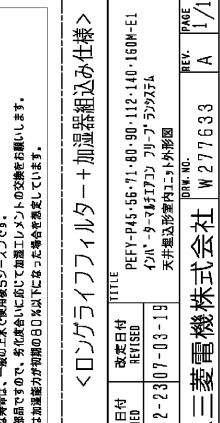 は、一般の上水で使用後5シーズンです。
部品ですので、劣化度合いに応じて加湿エレメントの交換をお願いします。
は加湿能力が初期の80%以下になった場合を想定しています。
<ロングライフフィルター+加湿器組込み仕様>
TITLE
PEFY-P45·56·71·80·90·112·140·160M-E1
インバーターマルチエアコン フリープランシステム
天井埋込形室内ユニット外形図
日付
改定日付
REVISED
2-23
07-03-19
三菱電機株式会社
DRW. NO.
W277633
REV.
A
PAGE
1/1